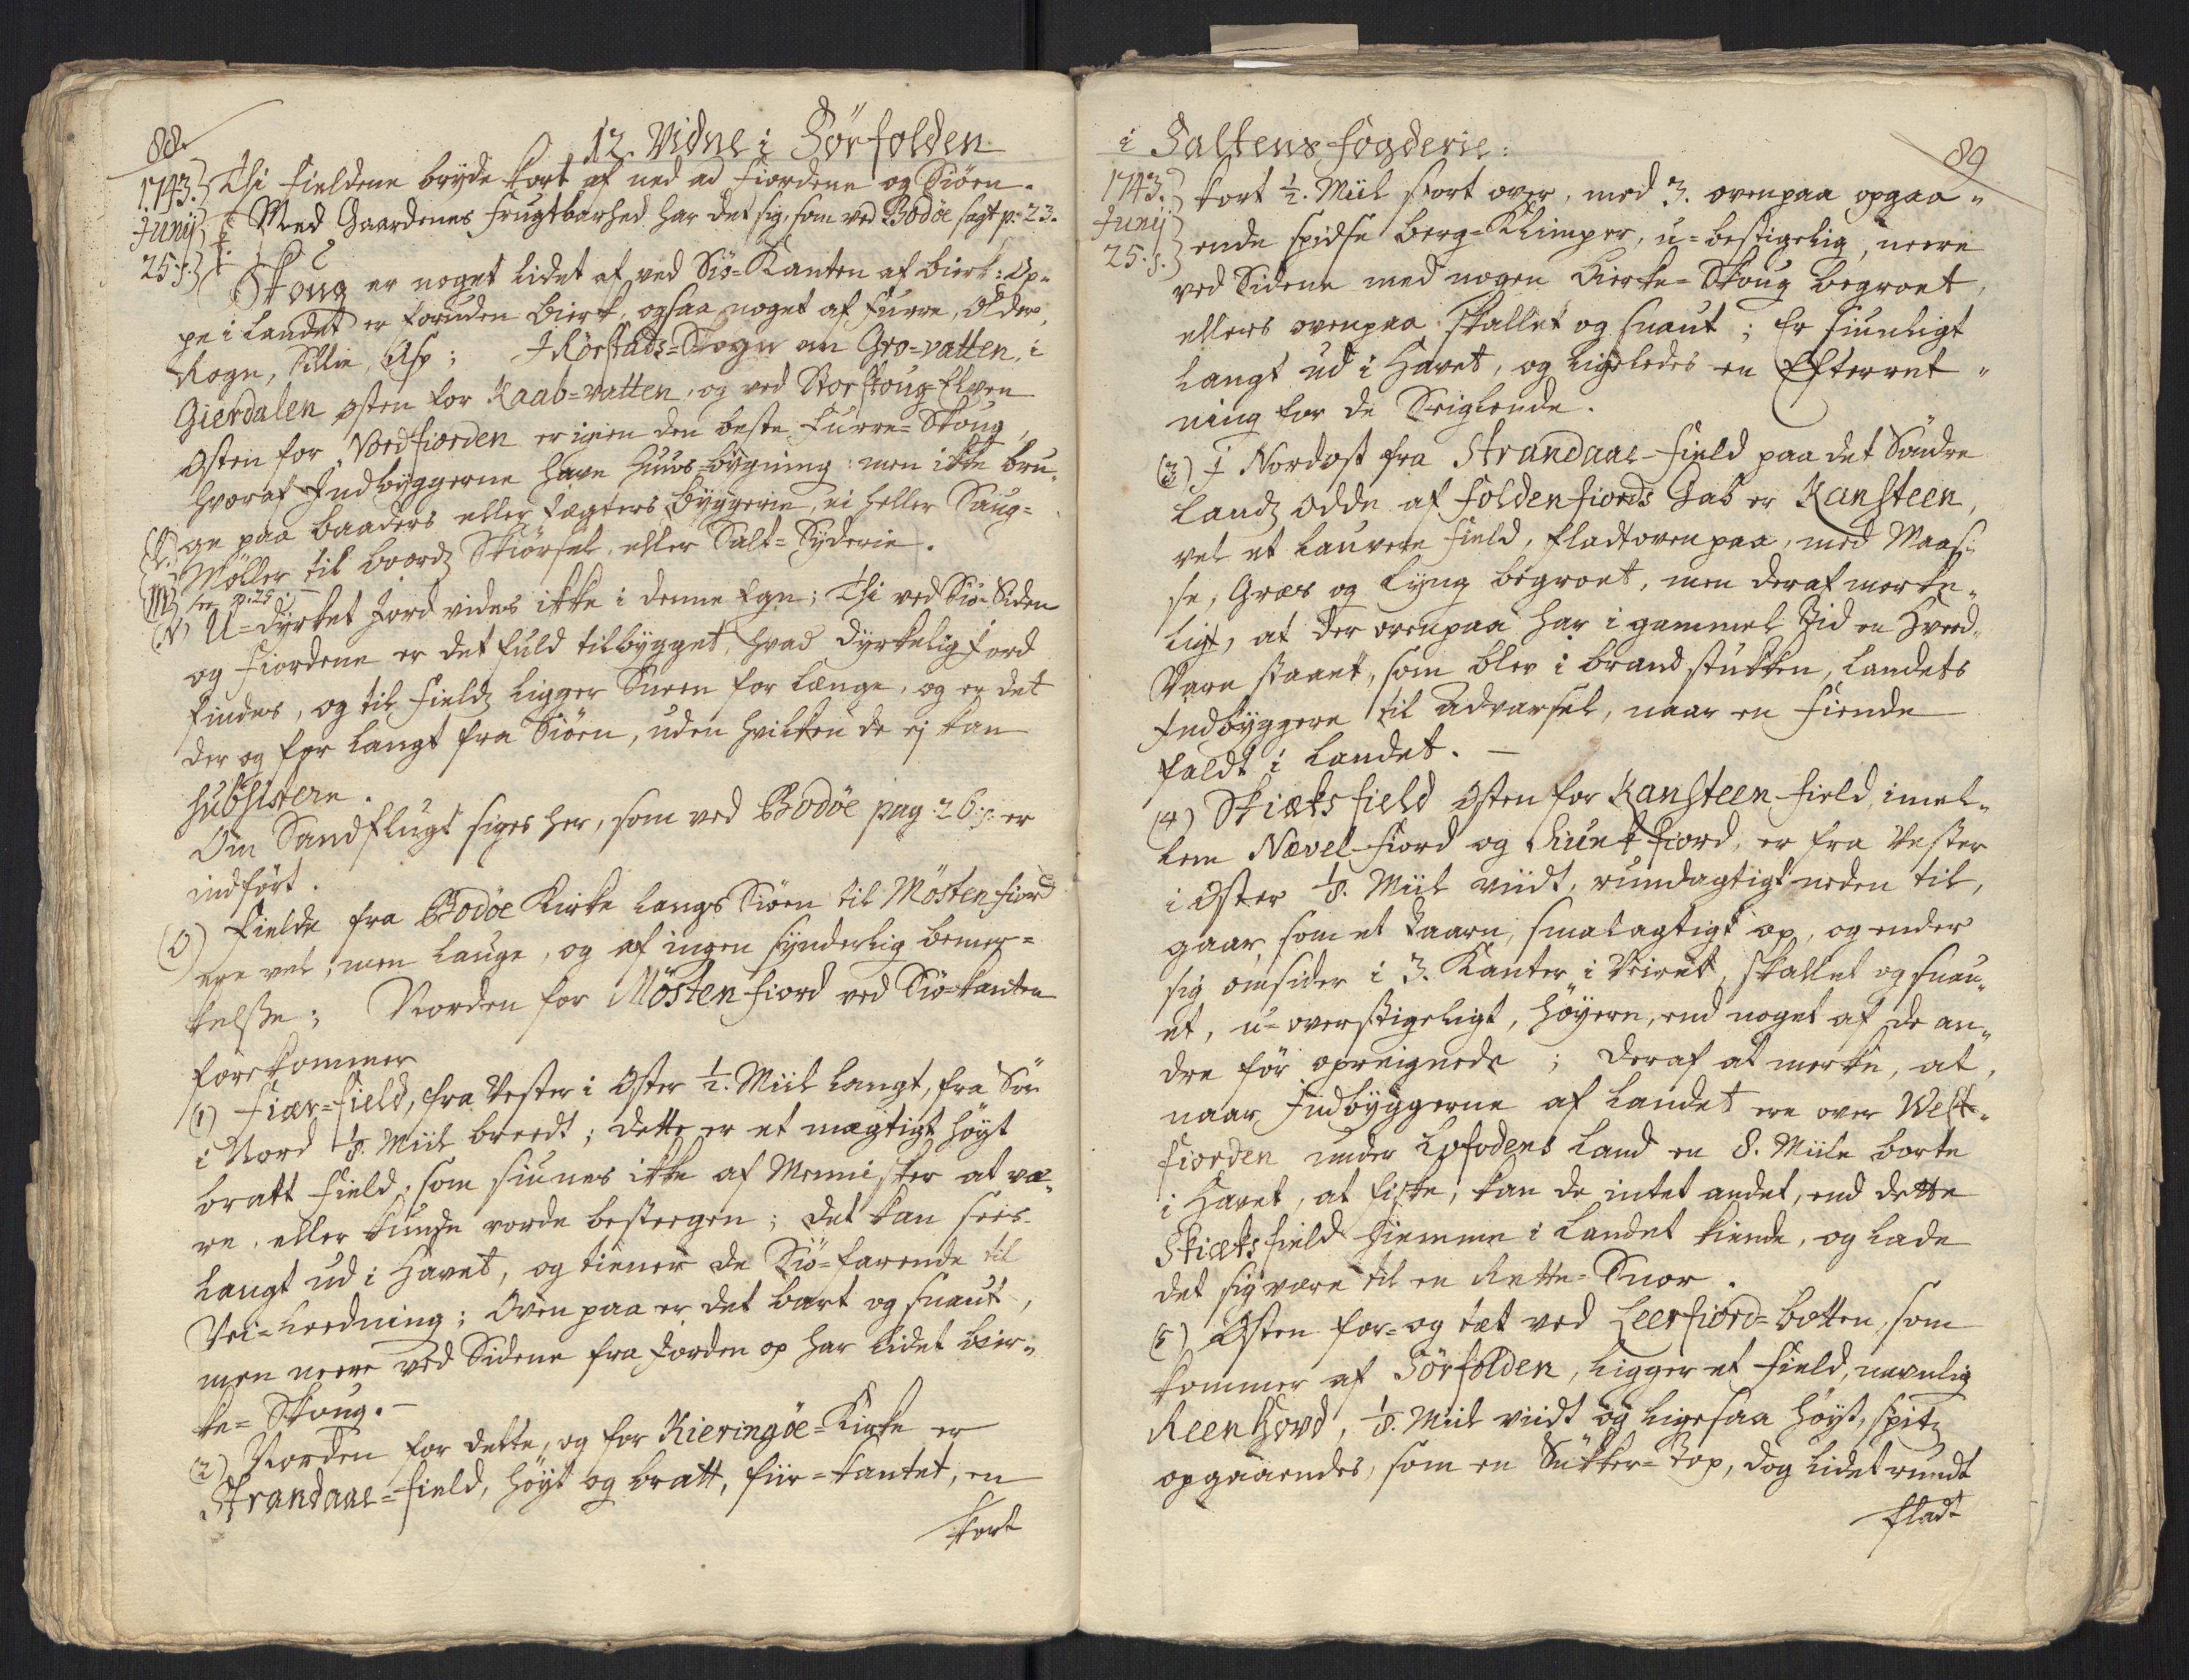 88.
12. Vidne i Sørfolden
1743.
Junij
25. s.
Thi Fieldene bryde kort af ned ad Fiordene og Siöen.
Med Gaardenes Frugtbarhed har det sig, som ved Bodöe sagt p: 23.
Skoug er noget lidet af ved Siö-Kanten af Birk: Op-
pe i Landet er foruden Birk, ogsaa noget af Furre, Older,
Rogn, Sillie, Asp; I Rörstads-Sogn om Gro-vatten, i
Gierdalen osten for Kaab-vatten, og ved Storskoug-Elven
Osten for Nordfiorden er igien den beste Furre-Skoug,
hvoraf Indbyggerne have Huus-bygning: men ikke bru-
(L) ge paa baaders eller Jægters byggerie, ei heller Saug-
Möller til boord Skiörsel, eller Salt-Syderie.
(M) see p. 25.
(N) U-dyrket Jord vides ikke i denne Egn; Thi ved Siö-Siden
og Fiordene er det fuld tilbygget, hvad dyrkelig Jord
findes, og til Fields ligger Sneen for længe, og er det
der og for langt fra Siöen, uden hvilken de ej kan
subsistere.
Om Sandflugt siges her, som ved Bodöe pag: 26. s. er
indfört.
(O) Fielde fra Bodöe Kirke langs Siöen til Mösten-fiord
ere vel, men lauge, og af ingen synderlig bemer-
kelße; Norden for Mösten-fiord ved Siö-kanten
forekommer
(1) Fiær-Field, fra Vester i Oster ½. Miil langt, fra Sör
i Nord ⅛. Miil breedt; dette er et mægtigt höyt
bratt Field, som siunes ikke af Mennisker at væ-
re, eller kunde vorde besteegen; det kan sees
langt ud i Havet, og tiener de Siö-farende til
Vei-Leedning; Ovenpaa er det bart og snaut,
men neere ved Sidene fra Jorden op har lidet bir-
ke-Skoug.
(2) Norden for dette, og for Kieringöe-Kirke er
Strandaae-Field, höyt og bratt, fiir-kantet, en
kort
i Saltens Fogderie:
89
1743.
Junij
25. s.
kort ½. Miil stort over, med 3. ovenpaa opgaa-
ende spidse berg-Klimper, u-bestigelig, neere
ved Sidene med nogen birke-Skoug begroet,
ellers ovenpaa skallet og snaut; Er siunligt
langt ud i Havet, og ligeledes en Efterret-
ning for de Seiglende.
(3) I Nordost fra Strandaae-Field paa det Söndre
Lands Odde af Foldenfiords Gab er Kansteen,
vel et lauvere Field, fladt ovenpaa, med Maas-
se, Græs og Lyng begroet, men deraf merke-
ligt, at der ovenpaa har i gammel Tid en Hved-
Vare staaet, som blev i brand stukken, Landets
Indbyggere til Advarsel, naar en Fiende
faldt i Landet.
(4) Skiæks field Osten for Kansteen-field, imel-
lem Nævel-fiord og fiord, er fra Vester
i Oster ⅛. Miil viidt, rundagtigt neden til,
gaar, som et Taarn, smalagtigt op, og ender
sig omsider i 3. Kanter i Veiret, skallet og snau-
et, u-overstigeligt, höyere, end noget af de an-
dre för opreignede; deraf at merke, at,
naar Indbyggerne af Landet ere over West-
Fiorden under Lofodens Land en 8. Miile borte
i Havet, at fiske, kan de intet andet, end dette
Skiæksfield hiemme i Landet kiende, og lade
det sig være til en Rette-Snor.
(5) Osten for- og tæt ved Leerfiord-botten, som
kommer af Sörfolden, ligger et Field, navnlig
Reenhovd, ⅛. Miil viidt og ligesaa höyt, spitz
opgaaendes, som en Sukker-Top, dog lidet rundt
fladt